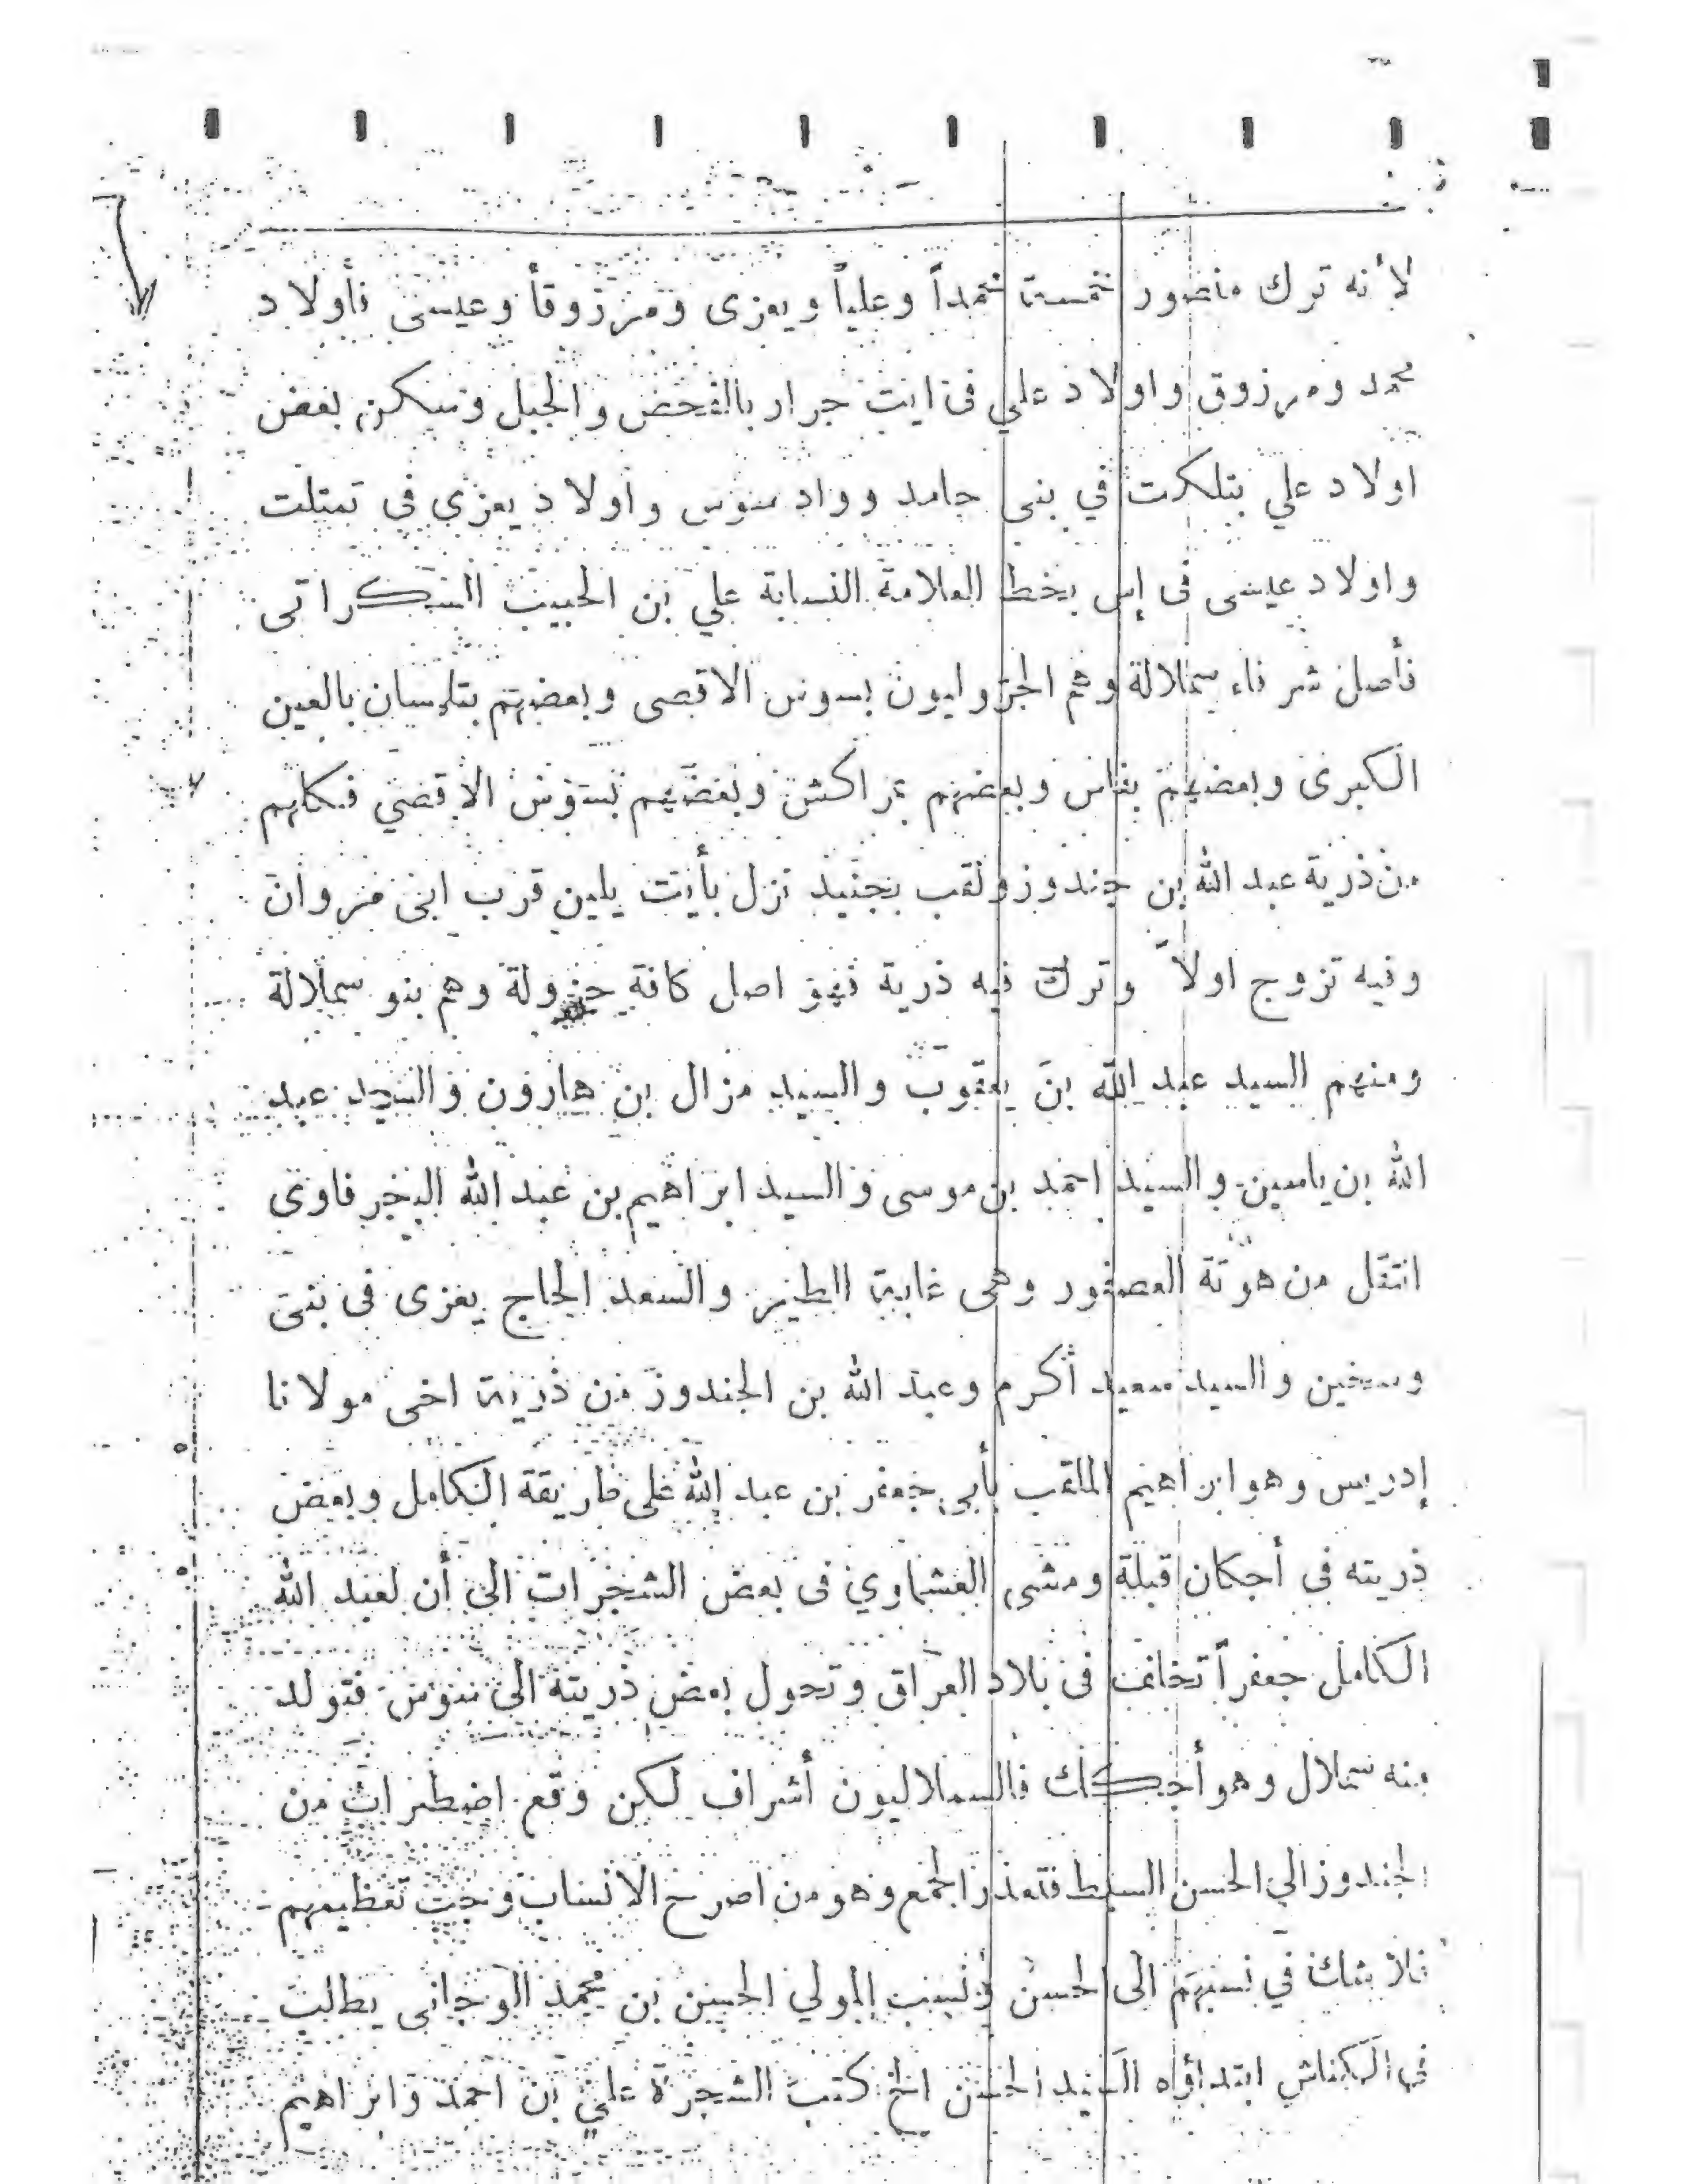 لأنه ترك منصور خمسة محمداً وعلياً ويعزى ومرزوقاً وعيسى فأولاد
محمد ومرزوق واولاد علي فى ايت جرار بالفحص والجبل وسكن بعض
اولاد علي بتلكرت في بنى حامد وواد سوس واولاد يعزى فى تمتلت
واولاد عيسى فى إس بخط العلامة النسابة علي بن الحبيب السكراتى
فأصل شرفاء سملالة وهم الجزوليون بسوس الاقصى وبعضهم بتلمسان بالعين
الكبرى وبعضهم بفاس وبعضهم بمراكش وبعضهم بسوس الاقصى فكلهم
من ذرية عبد الله بن جندوز ولقب بجنيد نزل بأيت يلين قرب ابى مروان
وفيه تزوج اولاً وترك فيه ذرية فهو اصل كافة جزولة وهم بنو سملالة
ومنهم السيد عبد الله بن يعقوب والسيد مزال بن هارون والسيد عبد
الله بن ياسين والسيد احمد بن موسى والسيد ابراهيم بن عبد الله البخرفاوى
انتقل من هوتة العصفور وهى غابة الطير والسعد الحاج يعزى فى بنى
وسخين والسيد سعيد أكرم وعبد الله بن الجندوز من ذرية اخى مولانا
إدريس وهو ابراهيم الملقب بأبى جعفر بن عبد الله على طريقة الكامل وبعض
ذريته في أجكان قبلة ومشى العشماوي فى بعض الشجرات الى أن لعبد الله
الكامل جعفراً تخلف فى بلاد العراق وتحول بعض ذريته الى سوس فتولد
منه سملال وهو أجكك فالسملاليون أشراف لكن وقع اضطراب من
الجندوز الي الحسن السبط فتعذر الجمع وهو من اصرح الانساب وجب تعظيمهم
فلا شك في نسبهم الى الحسن ونسب المولي الحسين بن محمد الوجانى يطالب
في الكناش ابتداؤه السيد الحسن الخ كتب الشجرة علي بن احمد وابراهيم